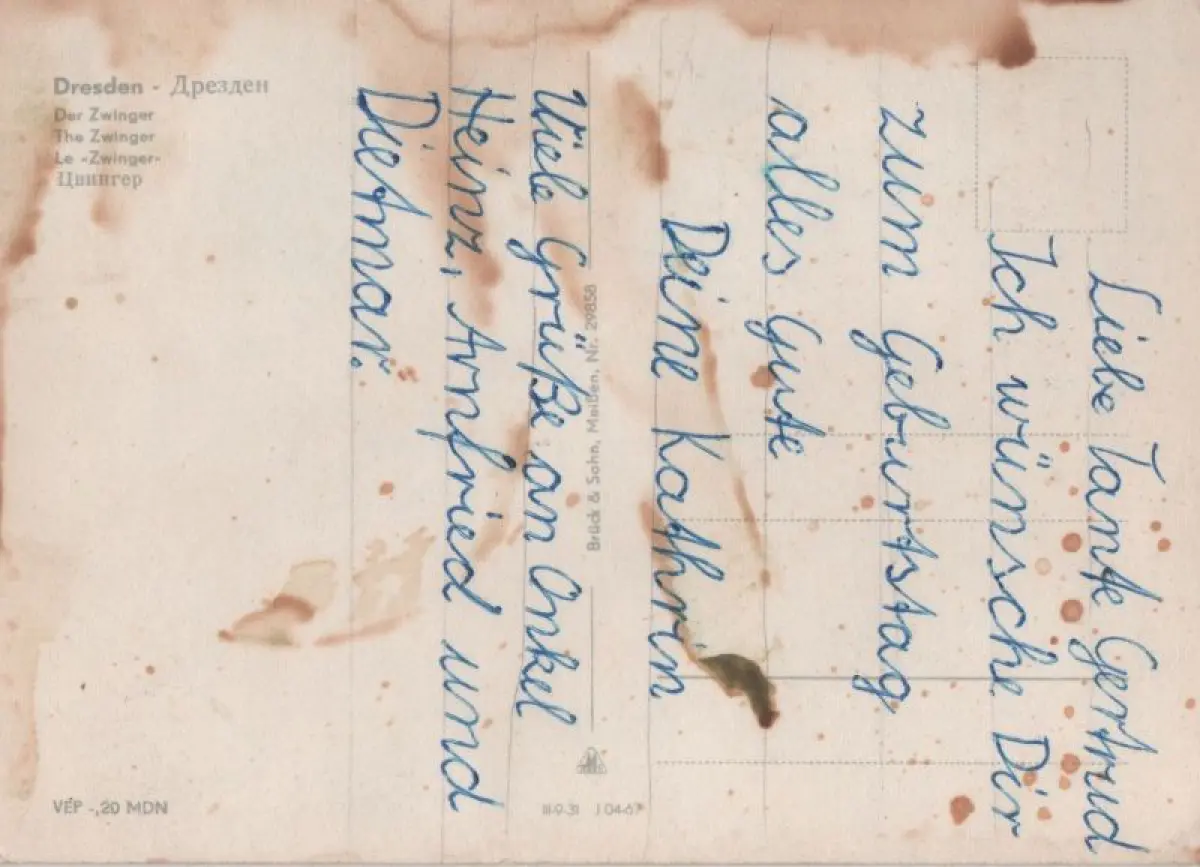 Dresden - Дрезден
Der Zwinger
The Zwinger
Le «Zwinger»
Цвингер
Liebe Tante Gertrud
Ich wünsche Dir
zum Geburtstag
alles Gute
Deine Kathrin
Viele Grüße an Onkel
Heinz, Arnfried und
Dietmar.
Brück & Sohn, Meißen, Nr. 29858
VEP -,20 MDN
III-9-31 J 04-67